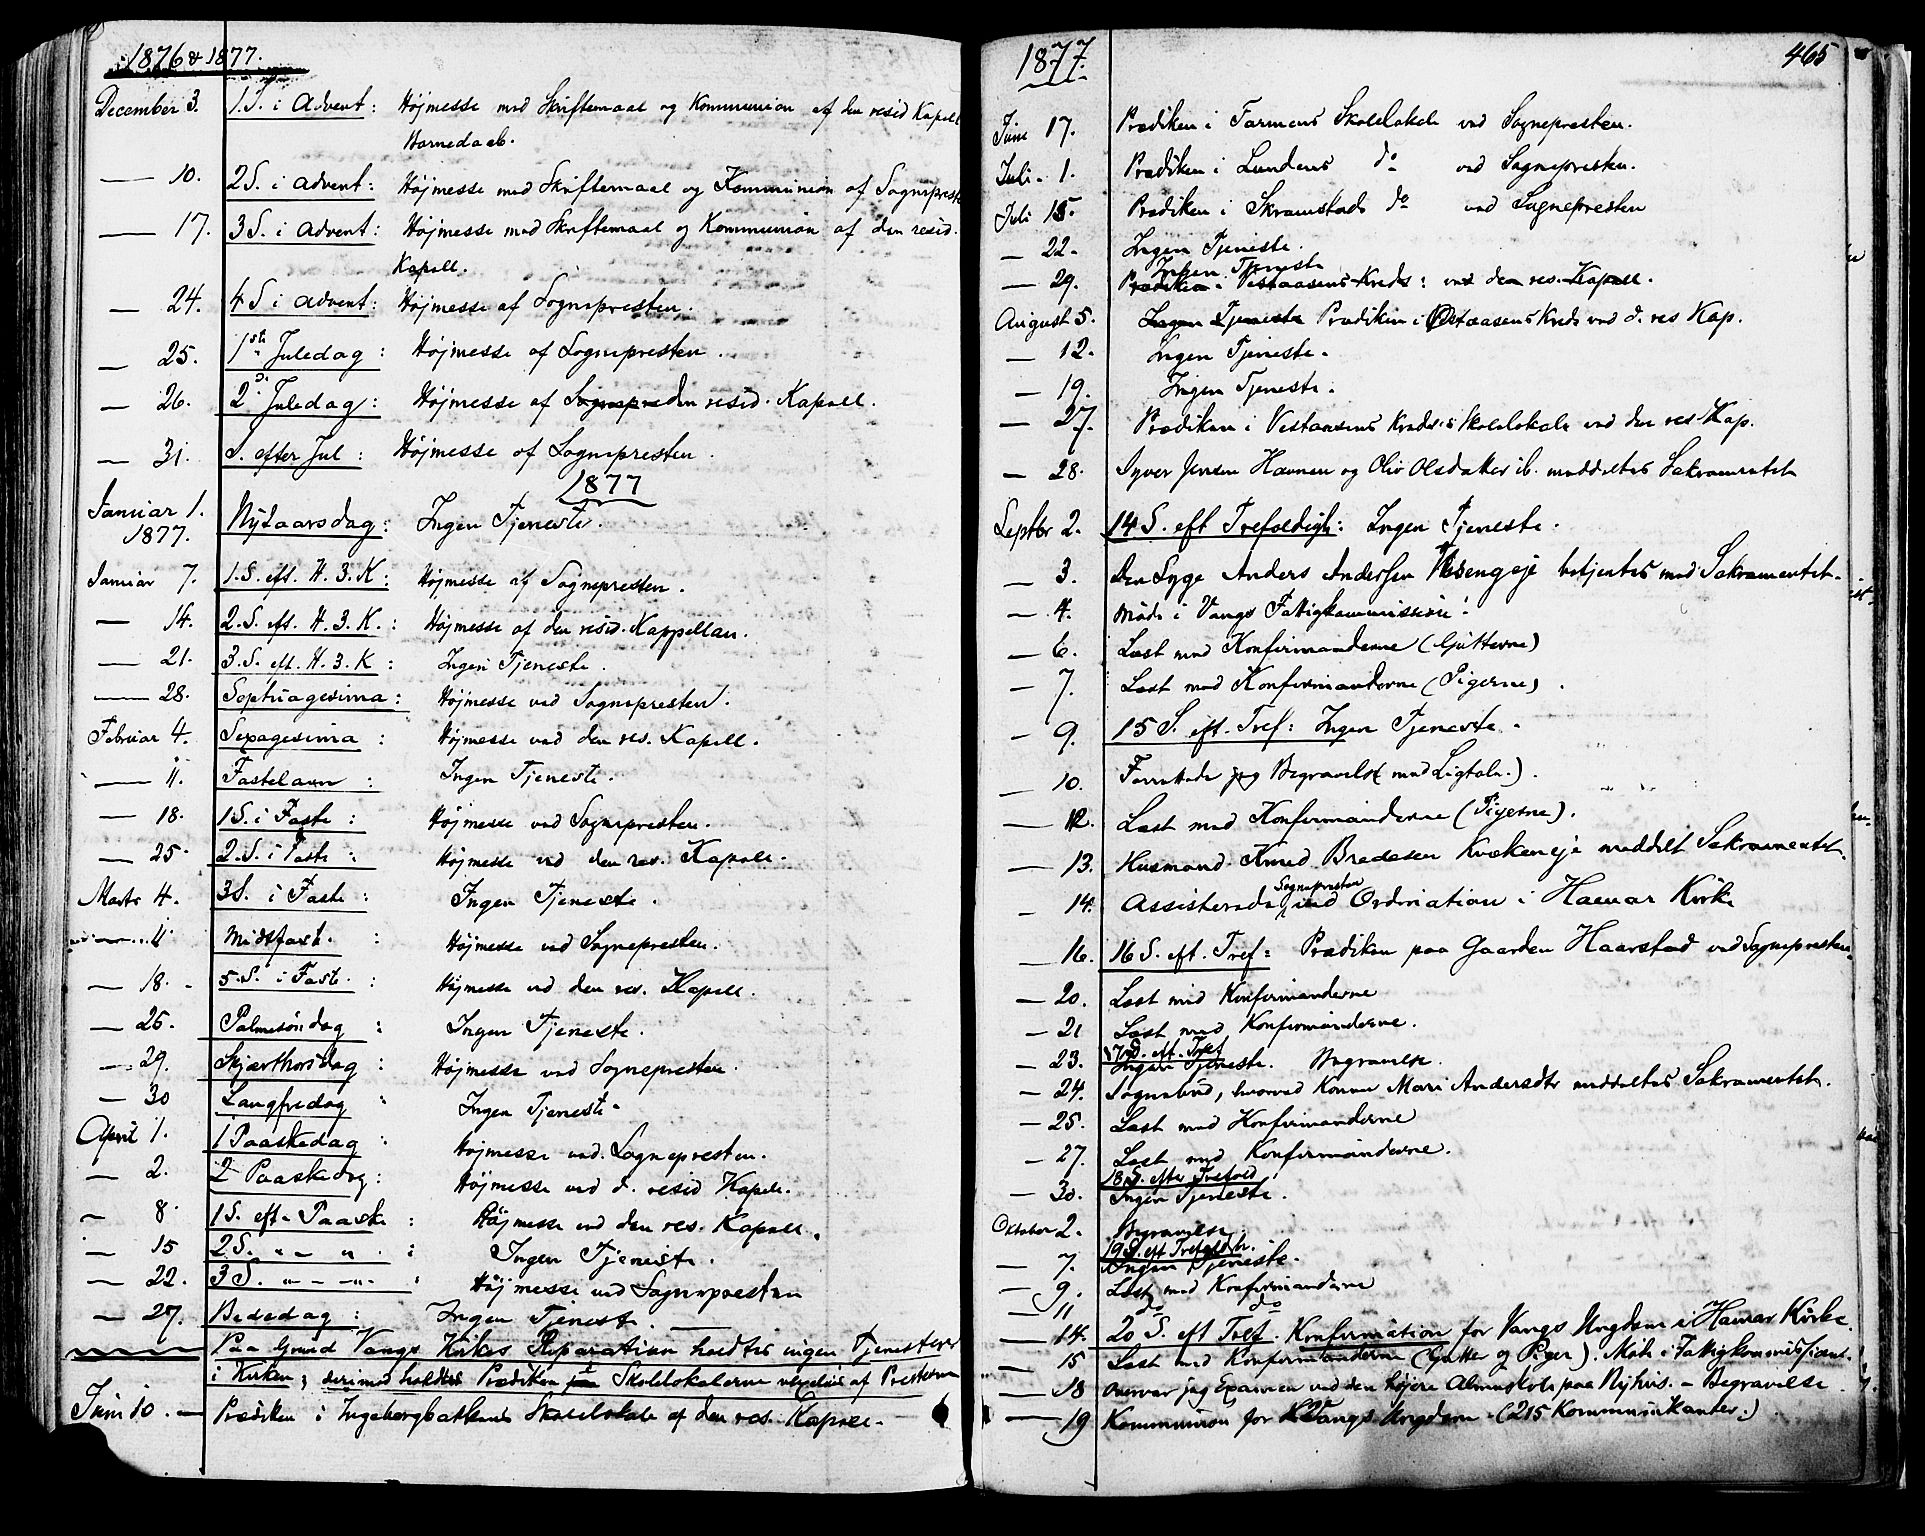 1876 & 1877.
December 3. 1. S. i Advent: Højmesse med Skriftemaal og Kommunion af den resid Kapell
Barnedaab.
— 10. 2 S. i Advent: Højmesse med Skriftemaal og Kommunion af Sogneprest
— 17. 3 S. i Advent: Højmesse med Skriftemaal og Kommunion af den resid.
Kapell.
— 24. 4 S i Advent: Højmesse af Sognepresten.
— 25. 1ste Juledag: Højmesse af Sognepresten.
— 26. 2. Juledag: Højmesse af Sognepre den resid. Kapell.
— 31. S. efter Jul: Højmesse af Sognepresten.
1877
Januar 1. 1877. Nytaarsdag: Ingen Tjeneste.
Januar 7. 1. S. eft. H. 3. K: Højmesse af Sognepresten.
— 14. 2. S. eft. H. 3. K.: Højmesse af den resid. Kappellan.
— 21. 3. S. eft. H. 3. K: Ingen Tjeneste.
— 28. Septuagesima: Højmesse ved Sognepresten.
Februar 4. Sexagesima: Højmesse ved den res. Kapell.
— 11. Fastelavn: Ingen Tjeneste.
— 18. 1 S. i Faste: Højmesse ved Sognepresten.
— 25. 2. S. i Faste: Højmesse ved den res. Kapell.
Marts 4. 3 S. i Faste: Ingen Tjeneste.
— 11 Midtfaste.: Højmesse ved Sognepresten.
— 18. 5. S. i Faste.: Højmesse ved den res. Kapell.
— 25. Palmesøndag: Ingen Tjeneste.
— 29. Skjærthorsdag: Højmesse ved Sognepresten.
— 30 Langfredag: Ingen Tjeneste.
April 1. 1 Paaskedag: Højmesse ved Sognepresten.
— 2. 2 Paaskedag: Højmesse ved d. resid Kapell.
— 8. 1 S. eft. Paaske: Højmesse ved den res. Kapell.
— 15 2 S. " — " : Ingen Tjeneste.
— 22. 3 S. " — " : Højmesse ved Sognepresten
— 27. Bededag: Ingen Tjeneste.
Paa Grund Vangs Kirkes Reparation holdtes ingen Tjenester
i Kirken; derimod holdtes Prædiken i Skolelokalerne af Presterne
Juni 10. — Prædiken i Ingebergbakkens Skolelokale af den res. Kapell.
1877. 465
Juni 17. Prædiken i Farmens Skolelokale ved Sognepresten.
Juli 1. Prædiken i Lundens do ved Sognepresten.
Juli 15. Prædiken i Skramstads do ved Sognepresten
— 22. Ingen Tjeneste.
Ingen Tjeneste
— 29. Prædiken i Vestaasens Kreds: ved den res. Kapell.
August 5. Ingen Tjeneste Prædiken i Østaasens Kreds ved d. res Kap.
— 12. Ingen Tjeneste.
— 19. Ingen Tjeneste.
— 27. Prædiken i Vestaasens Kreds's Skolelokale ved den res. Kap.
— 28. Syver Jensen Havnen og Oliv Olsdatter ib. meddeltes Sakramentet
Septbr 2. 14 S. eft Trefoldigh: Ingen Tjeneste.
— 3. Den Syge Anders Andersen betjentes med Sakramentet.
— 4. Møde i Vangs Fattigkommission.
— 6. Læst med Konfirmanderne (Gutterne)
— 7. Læst med Konfirmanderne (Pigerne).
— 9. 15 S. eft. Tref: Ingen Tjeneste.
— 10. Forrettede jeg Begravelse (med Ligtale.).
— 12. Læst med Konfirmanderne (Pigerne).
— 13. Husmand Knud Bredesen Kvækeneje meddelt Sakramentet.
— 14. Assisterede Sognepresten ved Ordination i Hamar Kirke
— 16. 16 S. eft. Tref: Prædiken paa Gaarden Haarstad ved Sognepresten.
— 20. Læst med Konfirmanderne
— 21 Læst med Konfirmanderne.
17 S. eft. Tref
— 23. Ingen Tjeneste. Begravelse.
— 24. Sognebud, hvorved Konen Mari Andersdtr meddeltes Sakramentet.
— 25. Læst med Konfirmanderne
— 27. Læst med Konfirmanderne.
18 S. efter Trefold
— 30. Ingen Tjeneste.
Oktober 2. Begravelse
19 S. eft Trefoldh.
— 7. Ingen Tjeneste.
— 9. Læst med Konfirmanderne
— 11 do do
— 14. 20 S. eft Tref. Konfirmation for Vangs Ungdom i Hamar Kirke
— 15 Læst med Konfirmanderne (Gutter og Piger). Møde i Fattigkommissionen.
— 18 Overvar jeg Examen ved den højere Almueskole paa Nyhus. — Begravelse
— 19 Kommunion for Vangs Ungdom. (215 Kommunikanter.)